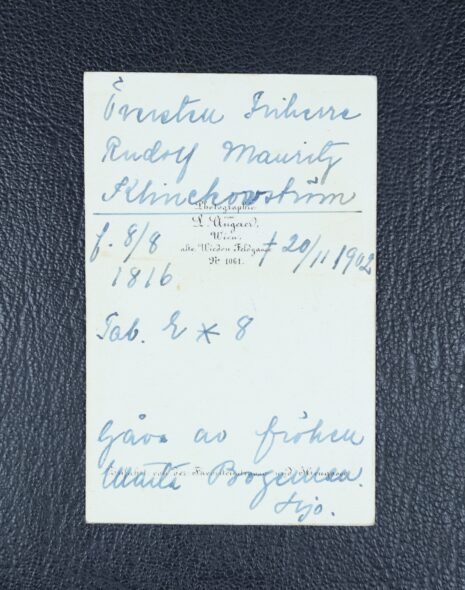 Översten Friherre
Rudolf Mauritz
Klinckowström
Photographie
L. Angerer,
Wien,
alte Wieden Feldgasse
Nº 1061.
f. 8/8 † 20/11 1902
1816
Tab. 8
Gåva av fröken
Märta Bogeman.
Hjo.